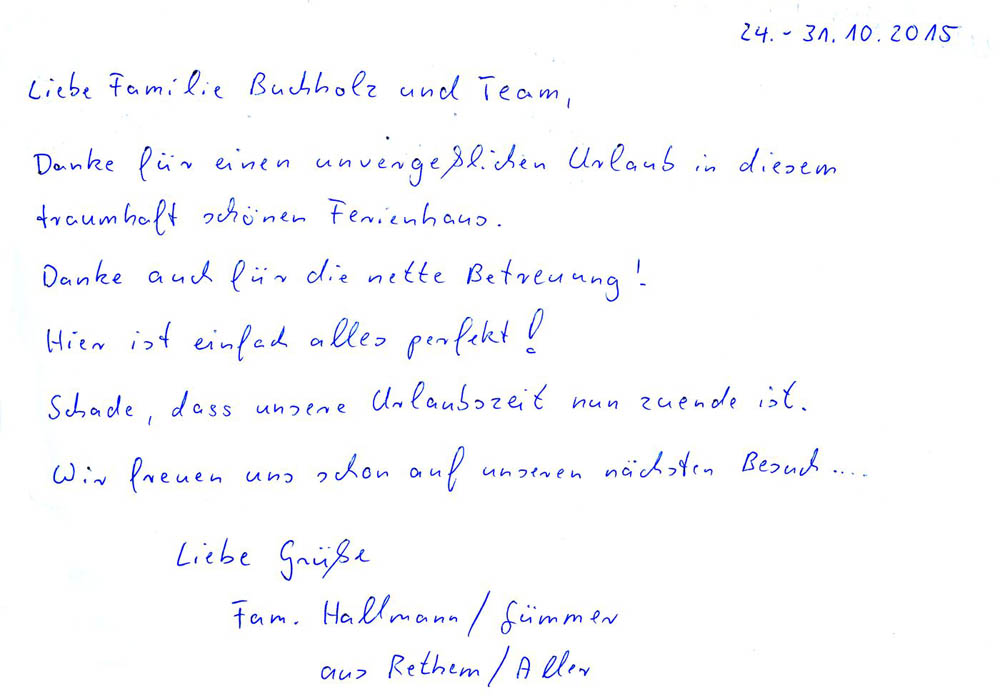 24.-31.10.2015
Liebe Familie Buchholz und Team,
Danke für einen unvergeßlichen Urlaub in diesem
traumhaft schönen Ferienhaus.
Danke auch für die nette Betreuung!
Hier ist einfach alles perfekt!
Schade, dass unsere Urlaubszeit nun zuende ist.
Wir freuen uns schon auf unseren nächsten Besuch....
Liebe Grüße
Fam. Hallmann/
aus Rethem/Aller